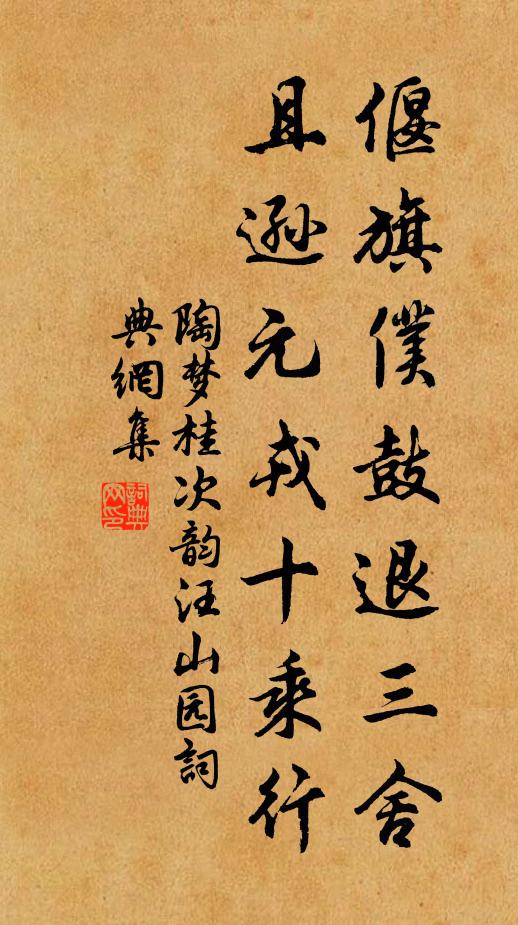 偃旗僕鼓退三舍
且遜元戎十乘行
陶梦桂次韵汪山园詞
典網集
詞典
网印